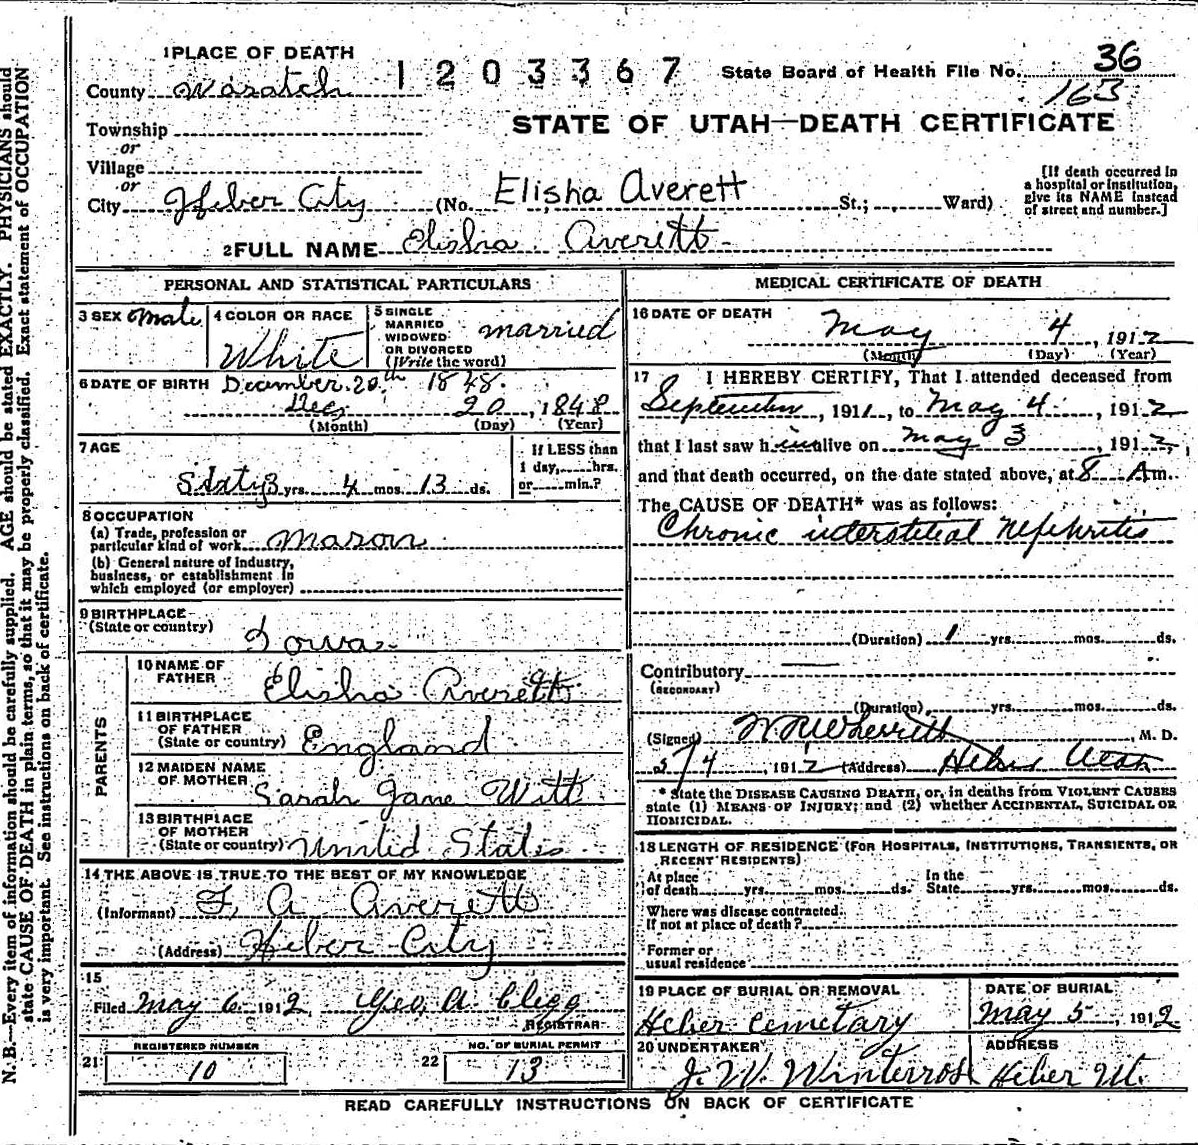 1 PLACE OF DEATH
1203367
State Board of Health File No. 36
163
County Wasatch
STATE OF UTAH—DEATH CERTIFICATE
Township
or
Village
or
City Heber City (No. Elisha Averett St.; Ward)
[If death occurred in a hospital or institution, give its NAME instead of street and number.]
2 FULL NAME Elisha Averett
PERSONAL AND STATISTICAL PARTICULARS
3 SEX Male
4 COLOR OR RACE White
5 SINGLE MARRIED WIDOWED OR DIVORCED (Write the word) married
6 DATE OF BIRTH December 20th 1848
Dec 20, 1848
(Month) (Day) (Year)
7 AGE
Sixty 3 yrs. 4 mos. 13 ds.
If LESS than 1 day, hrs. or min.?
8 OCCUPATION
(a) Trade, profession or particular kind of work mason
(b) General nature of industry, business, or establishment in which employed (or employer)
9 BIRTHPLACE (State or country) Iowa
PARENTS
10 NAME OF FATHER Elisha Averett
11 BIRTHPLACE OF FATHER (State or country) England
12 MAIDEN NAME OF MOTHER Sarah Jane Witt
13 BIRTHPLACE OF MOTHER (State or country) United States
14 THE ABOVE IS TRUE TO THE BEST OF MY KNOWLEDGE
(Informant) F. A. Averett
(Address) Heber City
15
Filed May 6 1912 Geo. A. Clegg
REGISTRAR
21 REGISTERED NUMBER 10
22 NO. OF BURIAL PERMIT 13
MEDICAL CERTIFICATE OF DEATH
16 DATE OF DEATH
May 4, 1912
(Month) (Day) (Year)
17 I HEREBY CERTIFY, That I attended deceased from
September, 1911, to May 4, 1912
that I last saw him alive on May 3, 1912,
and that death occurred, on the date stated above, at 8 Am.
The CAUSE OF DEATH* was as follows:
Chronic interstitial Nephritis
(Duration) 1 yrs. mos. ds.
Contributory
(SECONDARY)
(Duration) yrs. mos. ds.
(Signed) W R Wherritt, M. D.
5/4, 1912 (Address) Heber Utah
* State the DISEASE CAUSING DEATH, or, in deaths from VIOLENT CAUSES
state (1) MEANS OF INJURY; and (2) whether ACCIDENTAL, SUICIDAL OR
HOMICIDAL.
18 LENGTH OF RESIDENCE (FOR HOSPITALS, INSTITUTIONS, TRANSIENTS, OR
RECENT RESIDENTS)
At place of death yrs. mos. ds. In the State yrs. mos. ds.
Where was disease contracted.
If not at place of death?
Former or
usual residence
19 PLACE OF BURIAL OR REMOVAL
Heber Cemetary
DATE OF BURIAL
May 5, 1912
20 UNDERTAKER
J. W. Winterrose
ADDRESS
Heber Ut.
READ CAREFULLY INSTRUCTIONS ON BACK OF CERTIFICATE
N. B.—Every item of information should be carefully supplied. AGE should be stated EXACTLY. PHYSICIANS should
state CAUSE OF DEATH in plain terms, so that it may be properly classified. Exact statement of OCCUPATION
is very important. See instructions on back of certificate.